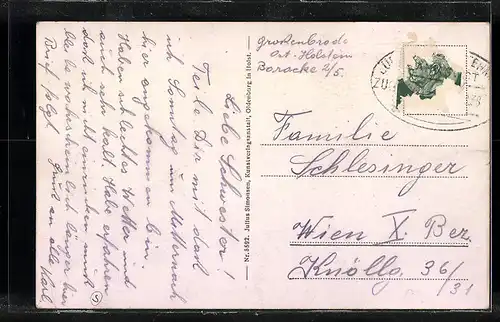 Liebe Schwester!
Teile Dir mit daß
ich Sonntag um Mitternach
hier angekommen bin.
Haben schlechtes Wetter und
auch sehr kalt. Habe erfahren
daß ich nicht einrücken muß
wahrscheinlich länger hier
Brief folgt. Gruß an alle Karl
Nr. 5592. Julius Simonsen, Kunstverlagsanstalt, Oldenburg in Holst.
Großenbrode
Ost-Holstein
Baracke 2/5.
Familie
Schlesinger
Wien X. Bez.
Knöllg. 36/31